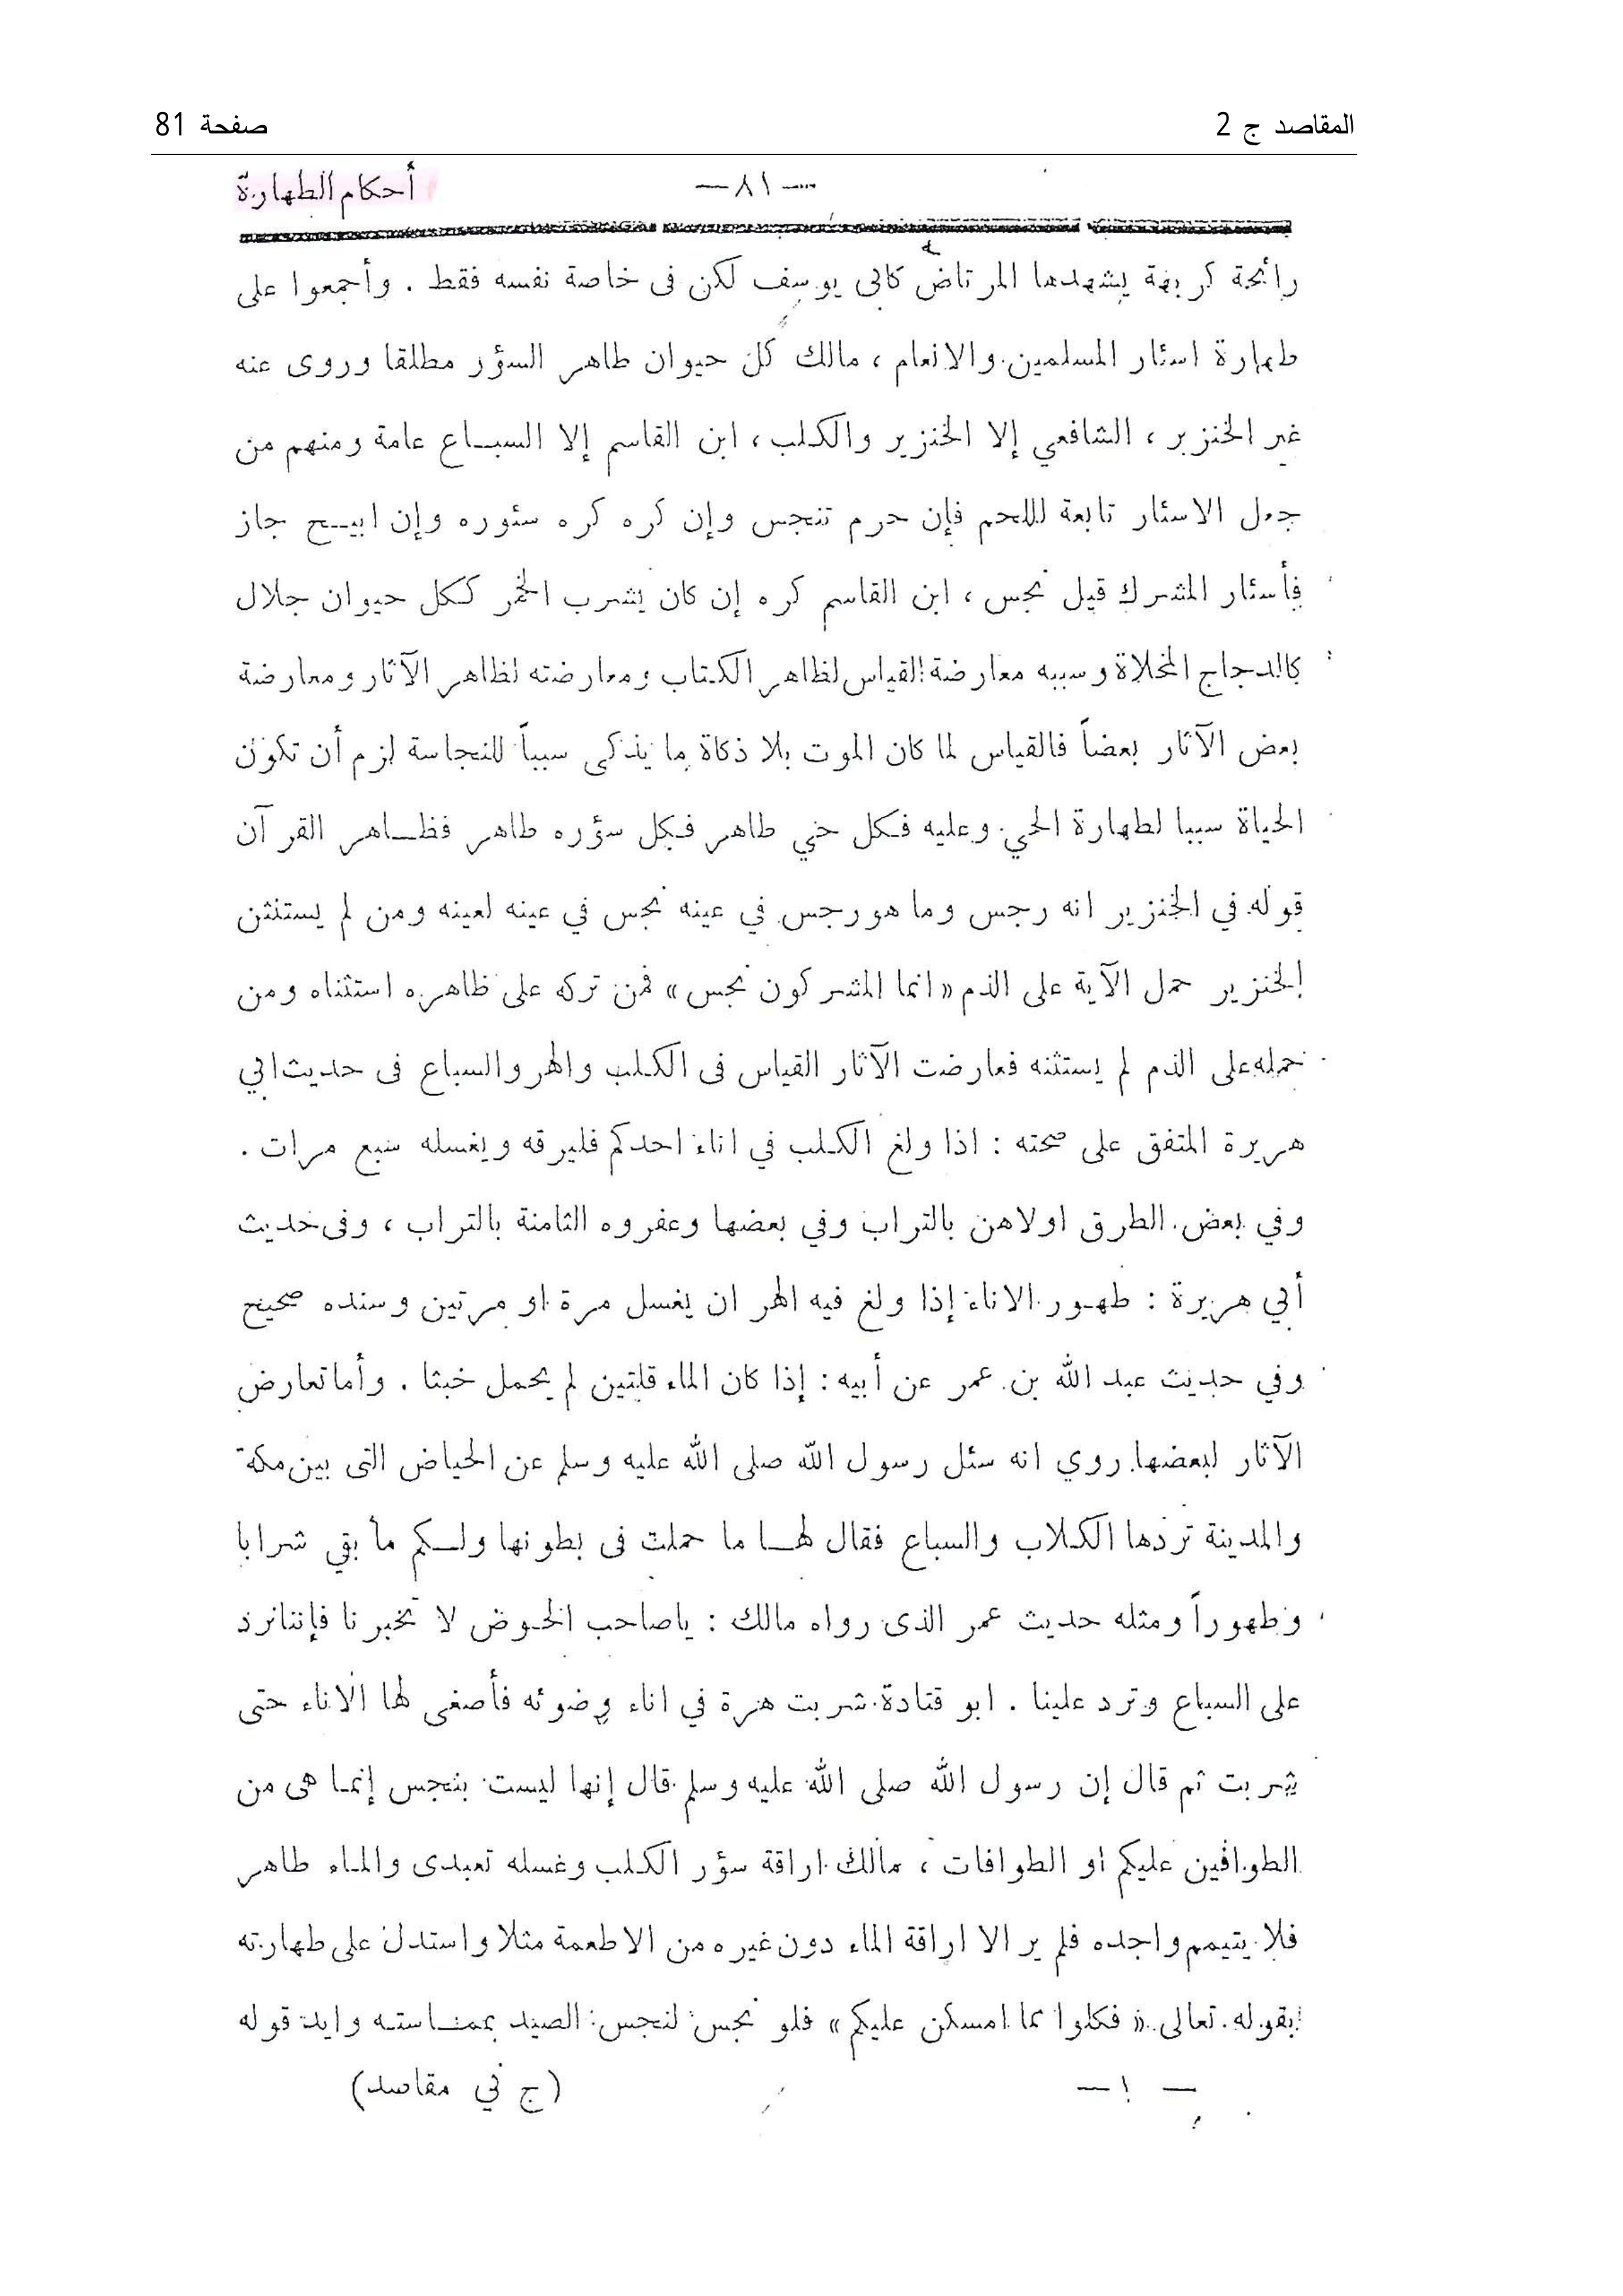 المقاصد ج 2
صفحة 81
أحكام الطهارة
—٨١—
رائحة كريهة يشهدها المرتاض كأبى يوسف لكن فى خاصة نفسه فقط . وأجمعوا على
طهارة اسئار المسلمين والانعام ، مالك كل حيوان طاهر السؤر مطلقا وروى عنه
غير الخنزير ، الشافعي إلا الخنزير والكلب ، ابن القاسم إلا السباع عامة ومنهم من
جعل الاسئار تابعة لللحم فإن حرم تنجس وإن كره كره سئوره وإن ابيح جاز
فأسئار المشرك قيل نجس ، ابن القاسم كره إن كان يشرب الخمر ككل حيوان جلال
كالدجاج المخلاة وسببه معارضة القياس لظاهر الكتاب ومعارضته لظاهر الآثار ومعارضة
بعض الآثار بعضاً فالقياس لما كان الموت بلا ذكاة ما يذكى سبباً للنجاسة لزم أن تكون
الحياة سببا لطهارة الحي وعليه فكل حي طاهر فكل سؤره طاهر فظاهر القرآن
قوله في الخنزير انه رجس وما هو رجس في عينه نجس في عينه لعينه ومن لم يستنثن
الخنزير حمل الآية على الذم « انما المشركون نجس » فمن تركه على ظاهره استثناه ومن
حمله على الذم لم يستثنه فعارضت الآثار القياس فى الكلب والهر والسباع فى حديث ابي
هريرة المتفق على صحته : اذا ولغ الكلب في اناء احدكم فليرقه ويغسله سبع مرات .
وفي بعض الطرق اولاهن بالتراب وفي بعضها وعفروه الثامنة بالتراب ، وفى حديث
أبي هريرة : طهور الاناء إذا ولغ فيه الهر ان يغسل مرة او مرتين وسنده صحيح
وفي حديث عبد الله بن عمر عن أبيه : إذا كان الماء قلتين لم يحمل خبثا . وأما تعارض
الآثار لبعضها روي انه سئل رسول الله صلى الله عليه وسلم عن الحياض التى بين مكة
والمدينة تردها الكلاب والسباع فقال لها ما حملت فى بطونها ولكم ما بقي شرابا
وطهوراً ومثله حديث عمر الذى رواه مالك : ياصاحب الحوض لا تخبرنا فإننا نرد
على السباع وترد علينا . ابو قتادة شربت هرة في اناء وضوئه فأصغى لها الاناء حتى
شربت ثم قال إن رسول الله صلى الله عليه وسلم قال إنها ليست بنجس إنما هى من
الطوافين عليكم او الطوافات ، مالك اراقة سؤر الكلب وغسله تعبدى والماء طاهر
فلا يتيمم واجده فلم ير الا اراقة الماء دون غيره من الاطعمة مثلا واستدل على طهارته
بقوله تعالى « فكلوا مما امسكن عليكم » فلو نجس لنجس الصيد بمماسته وايد قوله
(ج ني مقاصد)